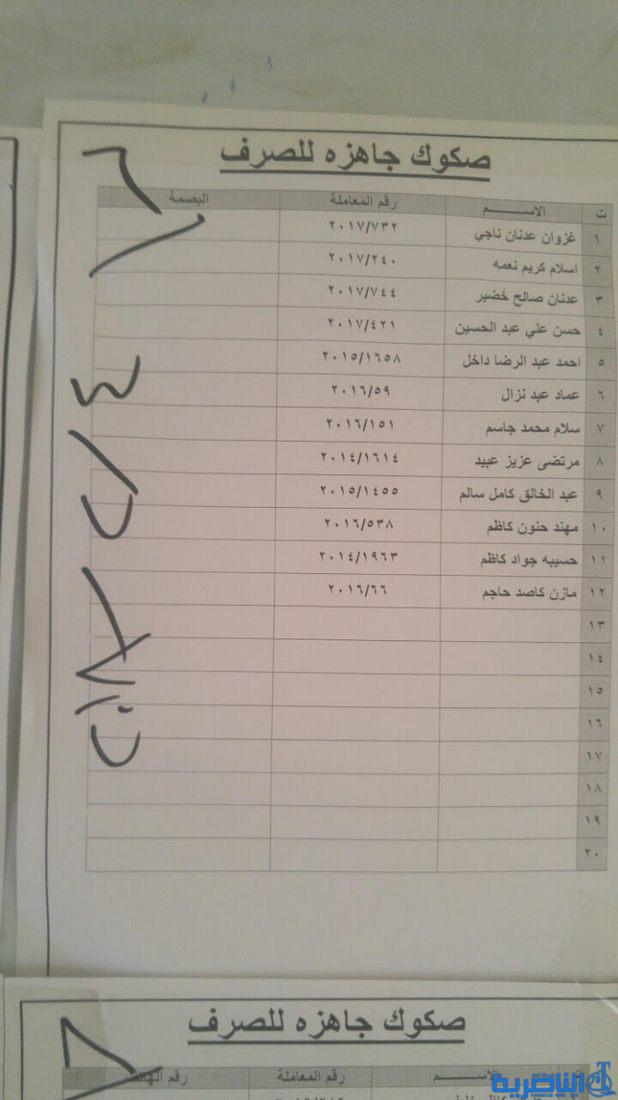 صكوك جاهزه للصرف
ت الاســـــم رقم المعاملة البصمة
١ غزوان عدنان ناجي ٢٠١٧/٧٣٢
٢ اسلام كريم نعمه ٢٠١٧/٢٤٠
٣ عدنان صالح خضير ٢٠١٧/٧٤٤
٤ حسن علي عبد الحسين ٢٠١٧/٤٢١
٥ احمد عبد الرضا داخل ٢٠١٥/١٦٥٨
٦ عماد عبد نزال ٢٠١٦/٥٩
٧ سلام محمد جاسم ٢٠١٦/١٥١
٨ مرتضى عزيز عبيد ٢٠١٤/١٦١٤
٩ عبد الخالق كامل سالم ٢٠١٥/١٤٥٥
١٠ مهند حنون كاظم ٢٠١٦/٥٣٨
١١ حسيبه جواد كاظم ٢٠١٤/١٩٦٣
١٢ مازن كاصد حاجم ٢٠١٦/٦٦
١٣
١٤
١٥
١٦
١٧
١٨
١٩
٢٠
صكوك جاهزه للصرف
الاســـــم رقم المعاملة رقم الهاتف
الناصرية